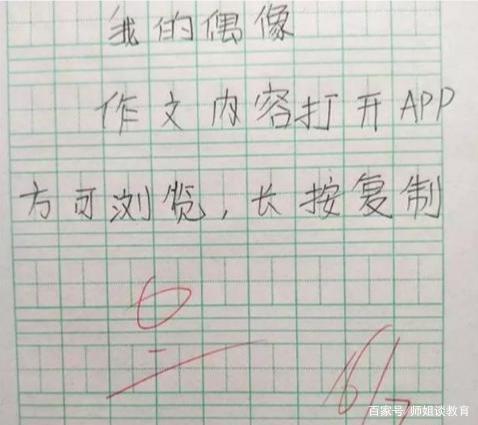 我的偶像
作文内容打开APP
方可浏览，长按复制
0
8/7
百家号/师姐谈教育